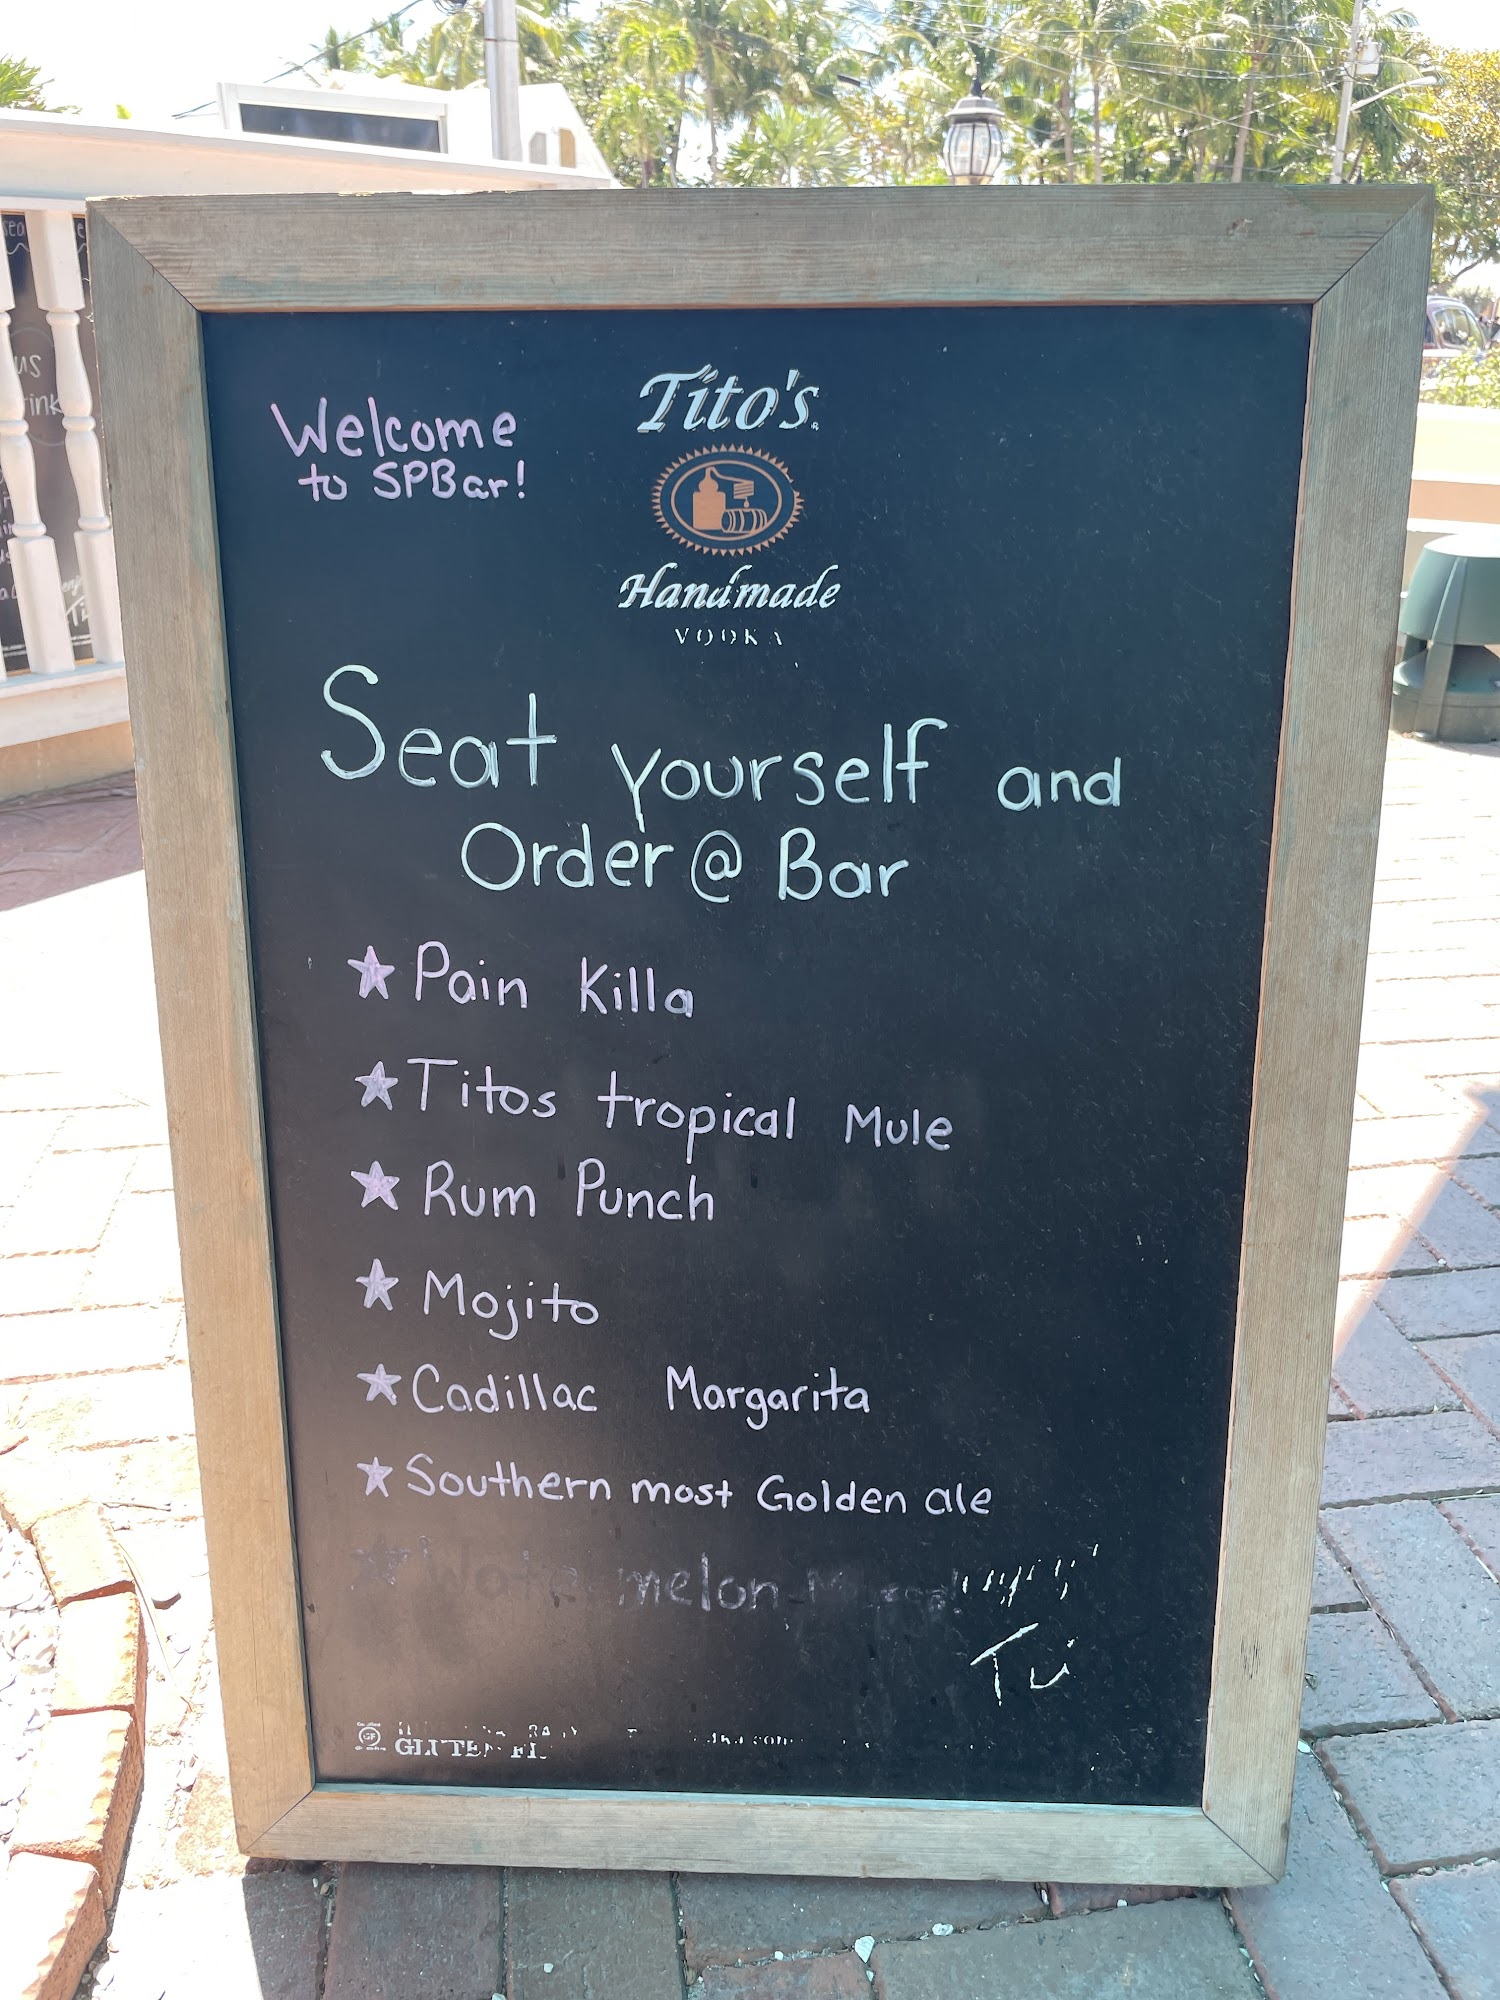 Welcome
to SPBar!
Tito's
Handmade
VODKA
Seat yourself and
Order @ Bar
★ Pain Killa
★ Titos tropical Mule
★ Rum Punch
★ Mojito
★ Cadillac Margarita
★ Southern most Golden ale
melon